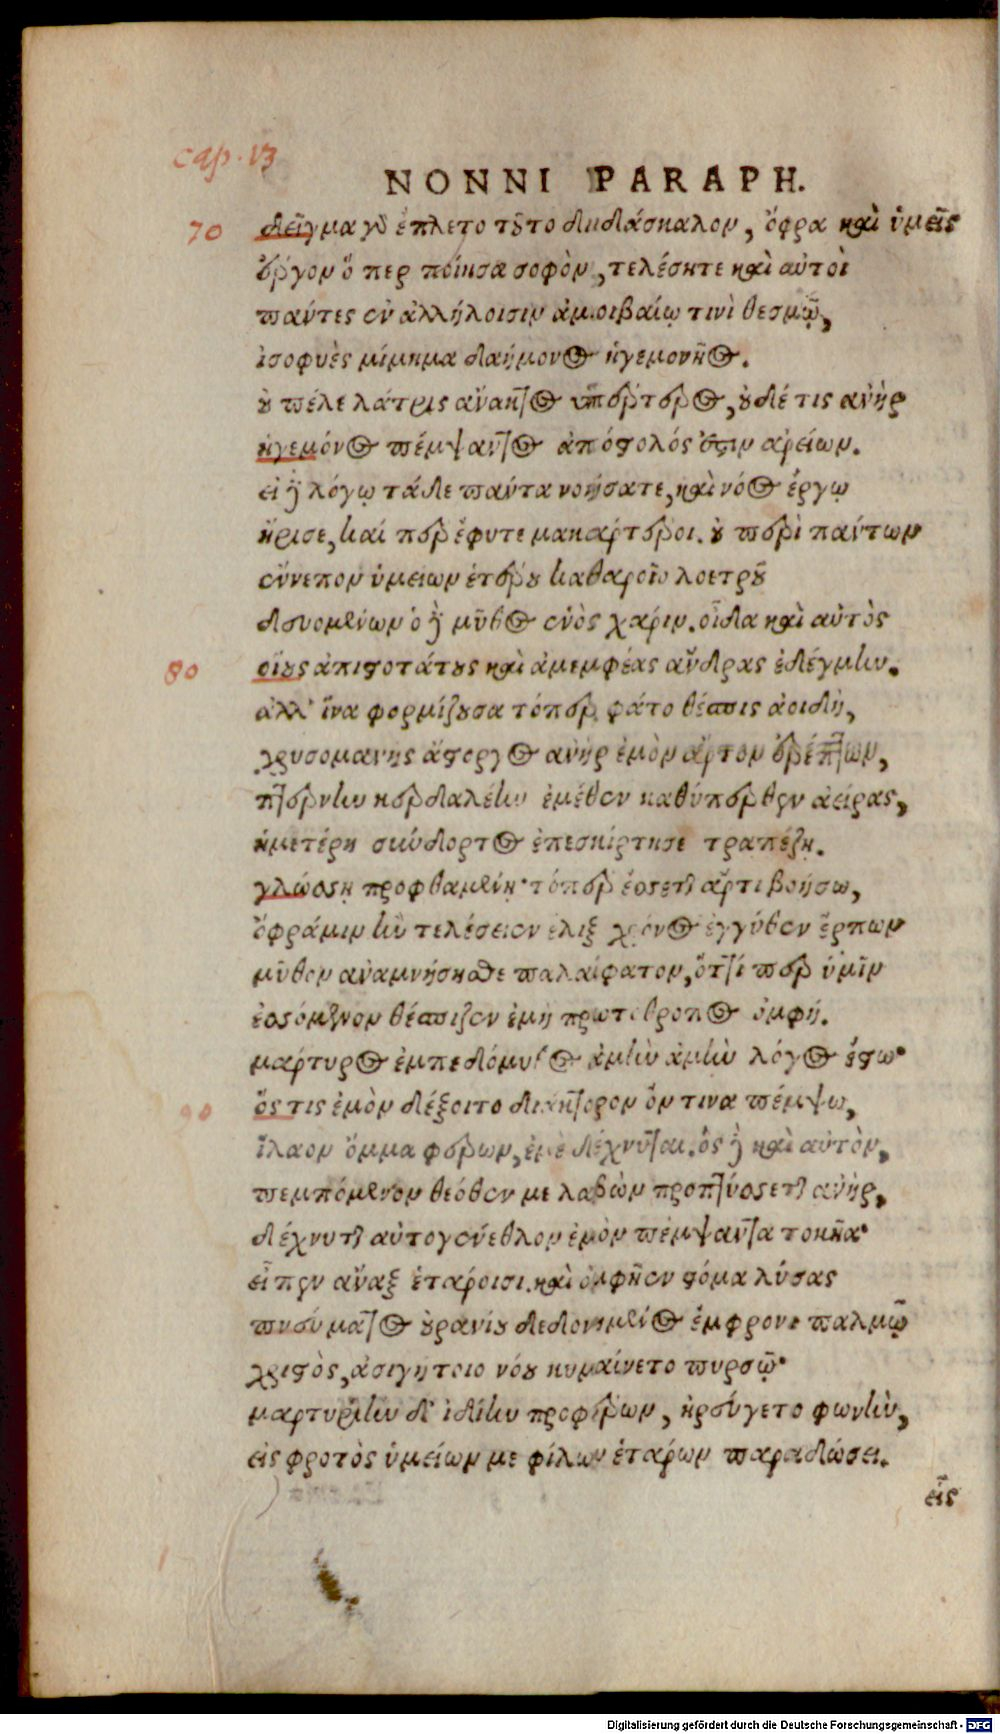 cap. 13
NONNI PARAPH.
70 δεῖγμα γὸ ἔπλετο τȣ̃το διδάσκαλον, ὄφρα καὶ ὑμεῖς
ἔργον ὅ περ ποίησα σοφὸν, τελέσητε καὶ αὐτοὶ
πάντες ἐν ἀλλήλοισιν ἀμοιβαίῳ τινὶ θεσμῷ,
ἰσοφυὲς μίμημα δαήμονος ἡγεμονῆος.
ȣ πέλε λάτρις ἄνακτος ὑπέρτερος, ȣδέ τις ἀνὴρ
ἡγεμόνος πέμψαντος ἀπόστολός ἐστιν ἀρείων.
εἰ ἢ λόγῳ τάδε πάντα νοήσατε, καὶ νόος ἔργῳ
ἤρισε, καί περ ἔφυτε μακάρτεροι. ȣ περὶ πάντων
ἔννεπον ὑμείων ἑτέρȣ καθαροῖο λοετρȣ̃
δευομένων ὁ ἢ μῦθος ἑνὸς χάριν. οἶδα καὶ αὐτὸς
80 οἵȣς ἀπιστοτάτȣς καὶ ἀμεμφέας ἄνδρας ἐδέγμην.
ἀλλ' ἵνα φορμίζȣσα τόπερ φάτο θέσπις ἀοιδὴ,
χρυσομανὴς ἄστοργος ἀνὴρ ἐμὸν ἄρτον ἐρέπτων,
πτέρνην κερδαλέην ἐμέθεν καθύπερθεν ἀείρας,
ἡμετέρῃ σκύδορτος ἐπεσκίρτησε τραπέζῃ.
γλώσσῃ προφθαμένῃ· τόπερ ἔσσεται ἄρτι βοήσω,
ὄφρά μιν ἢν τελέσειεν ἕλιξ χρόνος ἐγγύθεν ἕρπων
μῦθον ἀναμνήσησθε παλαίφατον, ὅττί περ ὑμῖν
ἐσσόμενον θέσπιζεν ἐμὴ πρωτόθροπος ὀμφή.
μάρτυρος ἐμπεδόμυθος ἀμὴν ἀμὴν λόγος ἔστω·
90 ὅς τις ἐμὸν δέξοιτο διάκτορον ὅν τινα πέμψω,
ἵλαον ὄμμα φέρων, ἐμὲ δέχνυται. ὃς ἢ καὶ αὐτὸν,
πεμπόμενον θεόθεν με λαβὼν προπτύσσεται ἀνὴρ,
δέχνυται αὐτογένεθλον ἐμὸν πέμψαντα τοκῆα·
εἶπεν ἄναξ ἑτάροισι. καὶ ὀμφῆεν στόμα λύσας
πνεύματος ȣρανίȣ δεδονημένος ἔμφρονι παλμῷ
χριστὸς, ἀσιγήτοιο νόȣ κυμαίνετο πυρσῷ·
μαρτυρίην δ' ἰδίην προφέρων, ἠρεύγετο φωνὴν,
εἷς φροτὸς ὑμείων με φίλων ἑτάρων παραδώσει.
εἷς
Digitalisierung gefördert durch die Deutsche Forschungsgemeinschaft - DFG